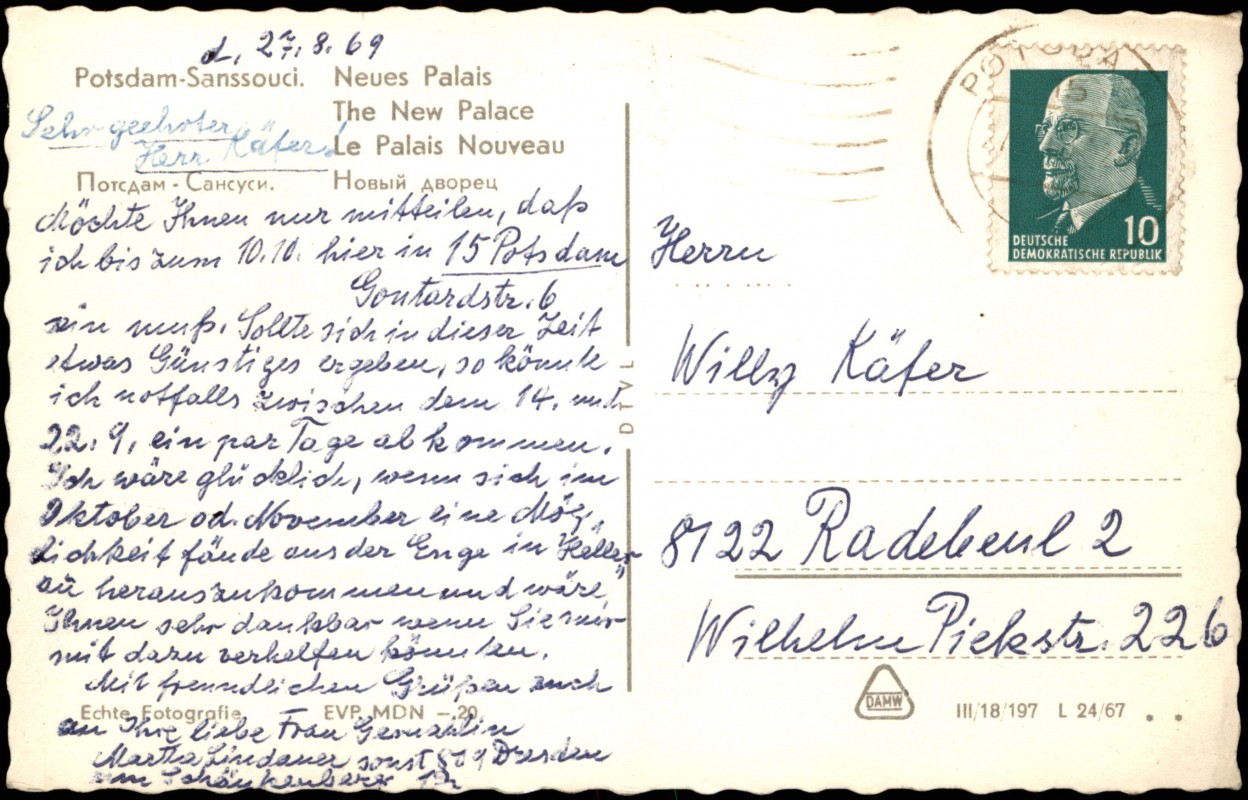 d. 27.8.69
Potsdam-Sanssouci. Neues Palais
The New Palace
Sehr geehrter
Herr Käfer!
Le Palais Nouveau
Потсдам - Сансуси. Новый дворец
Möchte Ihnen nur mitteilen, daß
ich bis zum 10.10. hier in 15 Potsdam
Gontardstr. 6
sein muß. Sollte sich in dieser Zeit
etwas Günstiges ergeben, so könnte
ich notfalls zwischen dem 14. und
22. 9. ein par Tage abkommen.
Ich wäre glücklich, wenn sich im
Oktober od. November eine Mög„
lichkeit fände aus der Enge in Keller
au herauszukommen und wäre
Ihnen sehr dankbar wenn Sie mir
mit dazu verhelfen könnten.
Mit freundlichen Grüßen auch
Echte Fotografie EVP MDN –.20
an Ihre liebe Frau Gemahlin
Martha Lindauer sonst 809 Dresden
am Schänkenberg
DTVL
POTSDAM
15
DEUTSCHE
DEMOKRATISCHE REPUBLIK
10
Herrn
Willy Käfer
8122 Radebeul 2
Wilhelm Pieckstr. 226
DAMW
III/18/197 L 24/67